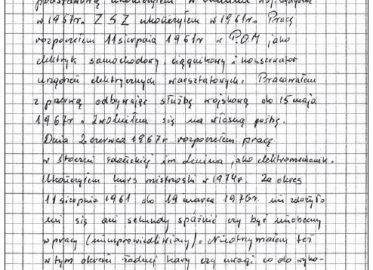 podstawową ukończyłem w
w 1957r. Z S Z ukończyłem w 1961r. Pracę
rozpocząłem 11 sierpnia 1961r w POM jako
elektryk samochodowy, ciągnikowy i konserwator
urządzeń elektrycznych warsztatowych. Pracowałem
z przerwą odbywając służbę wojskową do 15 maja
1967r. Zwolniłem się na własną prośbę.
Dnia 2 czerwca 1967r rozpocząłem pracę
w stoczni gdańskiej im Lenina jako elektromechanik.
Ukończyłem kurs mistrzowski w 1974r. Za okres
11 sierpnia 1961 do 19 marca 1976r nie zdarzyło
mi się ani sekundy spóźnić czy być nieobecny
w pracy (nieusprawiedliwiony). Nie otrzymałem też
w tym okresie żadnej kary czy uwagi co do wyko-